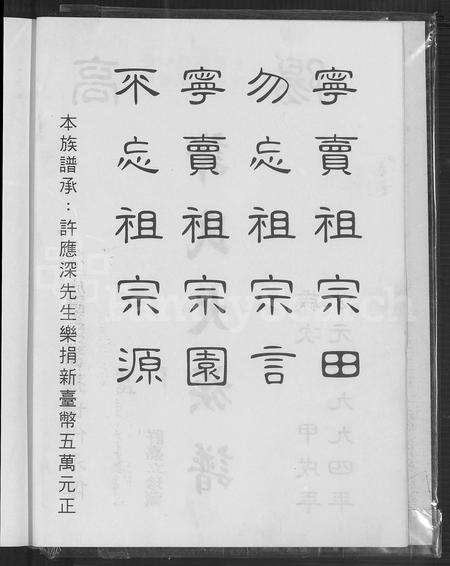 寧賣祖宗田
勿忘祖宗言
寧賣祖宗園
不忘祖宗源
本族譜承：許應深先生樂捐新臺幣五萬元正